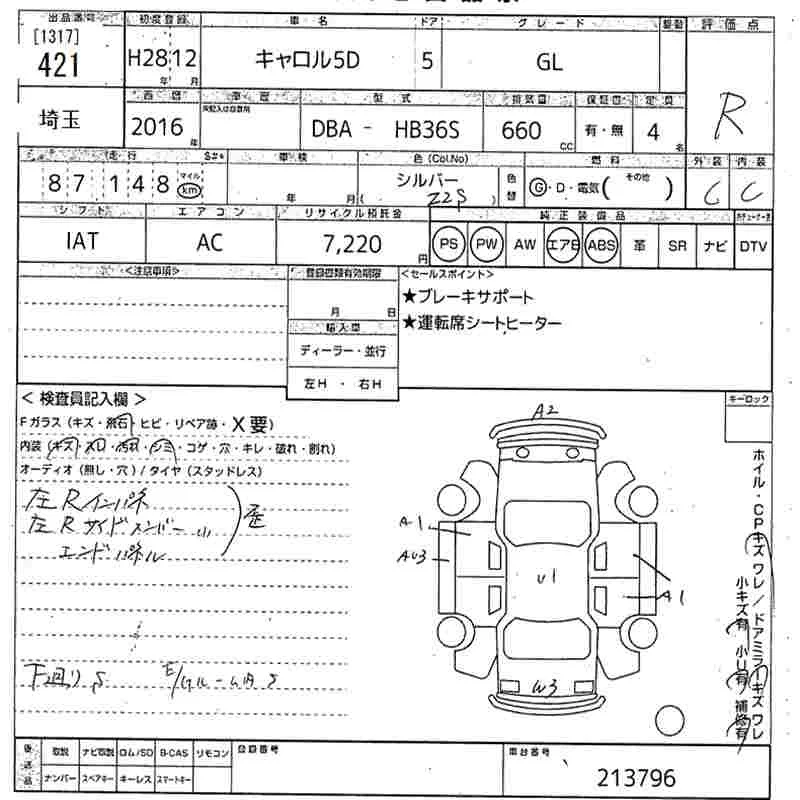 出品番号 初度登録 車名 ドア グレード 駆動 評価点
[1317]
421 H28 12 キャロル5D 5 GL R
年 月
埼玉 西暦 車歴 型式 排気量 保証書 定員
2016 年 DBA - HB36S 660 CC 有・無 4 名
走行 S#* 車検 色 (Col.No) 燃料 外装 内装
87,148 マイル km 年 月 シルバー Z2S 色替 G・D・電気 (その他) C C
シフト エアコン リサイクル預託金 純正装備品
IAT AC 7,220 円 PS PW AW エアB ABS 革 SR ナビ DTV
<注意事項> 登録書類有効期限 <セールスポイント>
月 日 ★ブレーキサポート
輸入車 ★運転席シートヒーター
ディーラー・並行
左H ・ 右H
<検査員記入欄> キーロック
Fガラス (キズ・飛石・ヒビ・リペア跡・X要)
内装 (キズ・スレ・汚れ・シミ・コゲ・穴・キレ・破れ・割れ)
オーディオ (無し・穴) / タイヤ (スタッドレス)
左Rインパネ
左Rサイドメンバー 小 歪
エンドパネル
下廻りS E/
A2
A1
AU3
U1
A1
U3
ホイル・CPキズワレ/ドアミラーキズワレ
小キズ有 小U有 補修有
後送品 取説 ナビ取説 ロム/SD B-CAS リモコン 登録番号 車台番号
ナンバー スペアキー キーレス スマートキー 213796